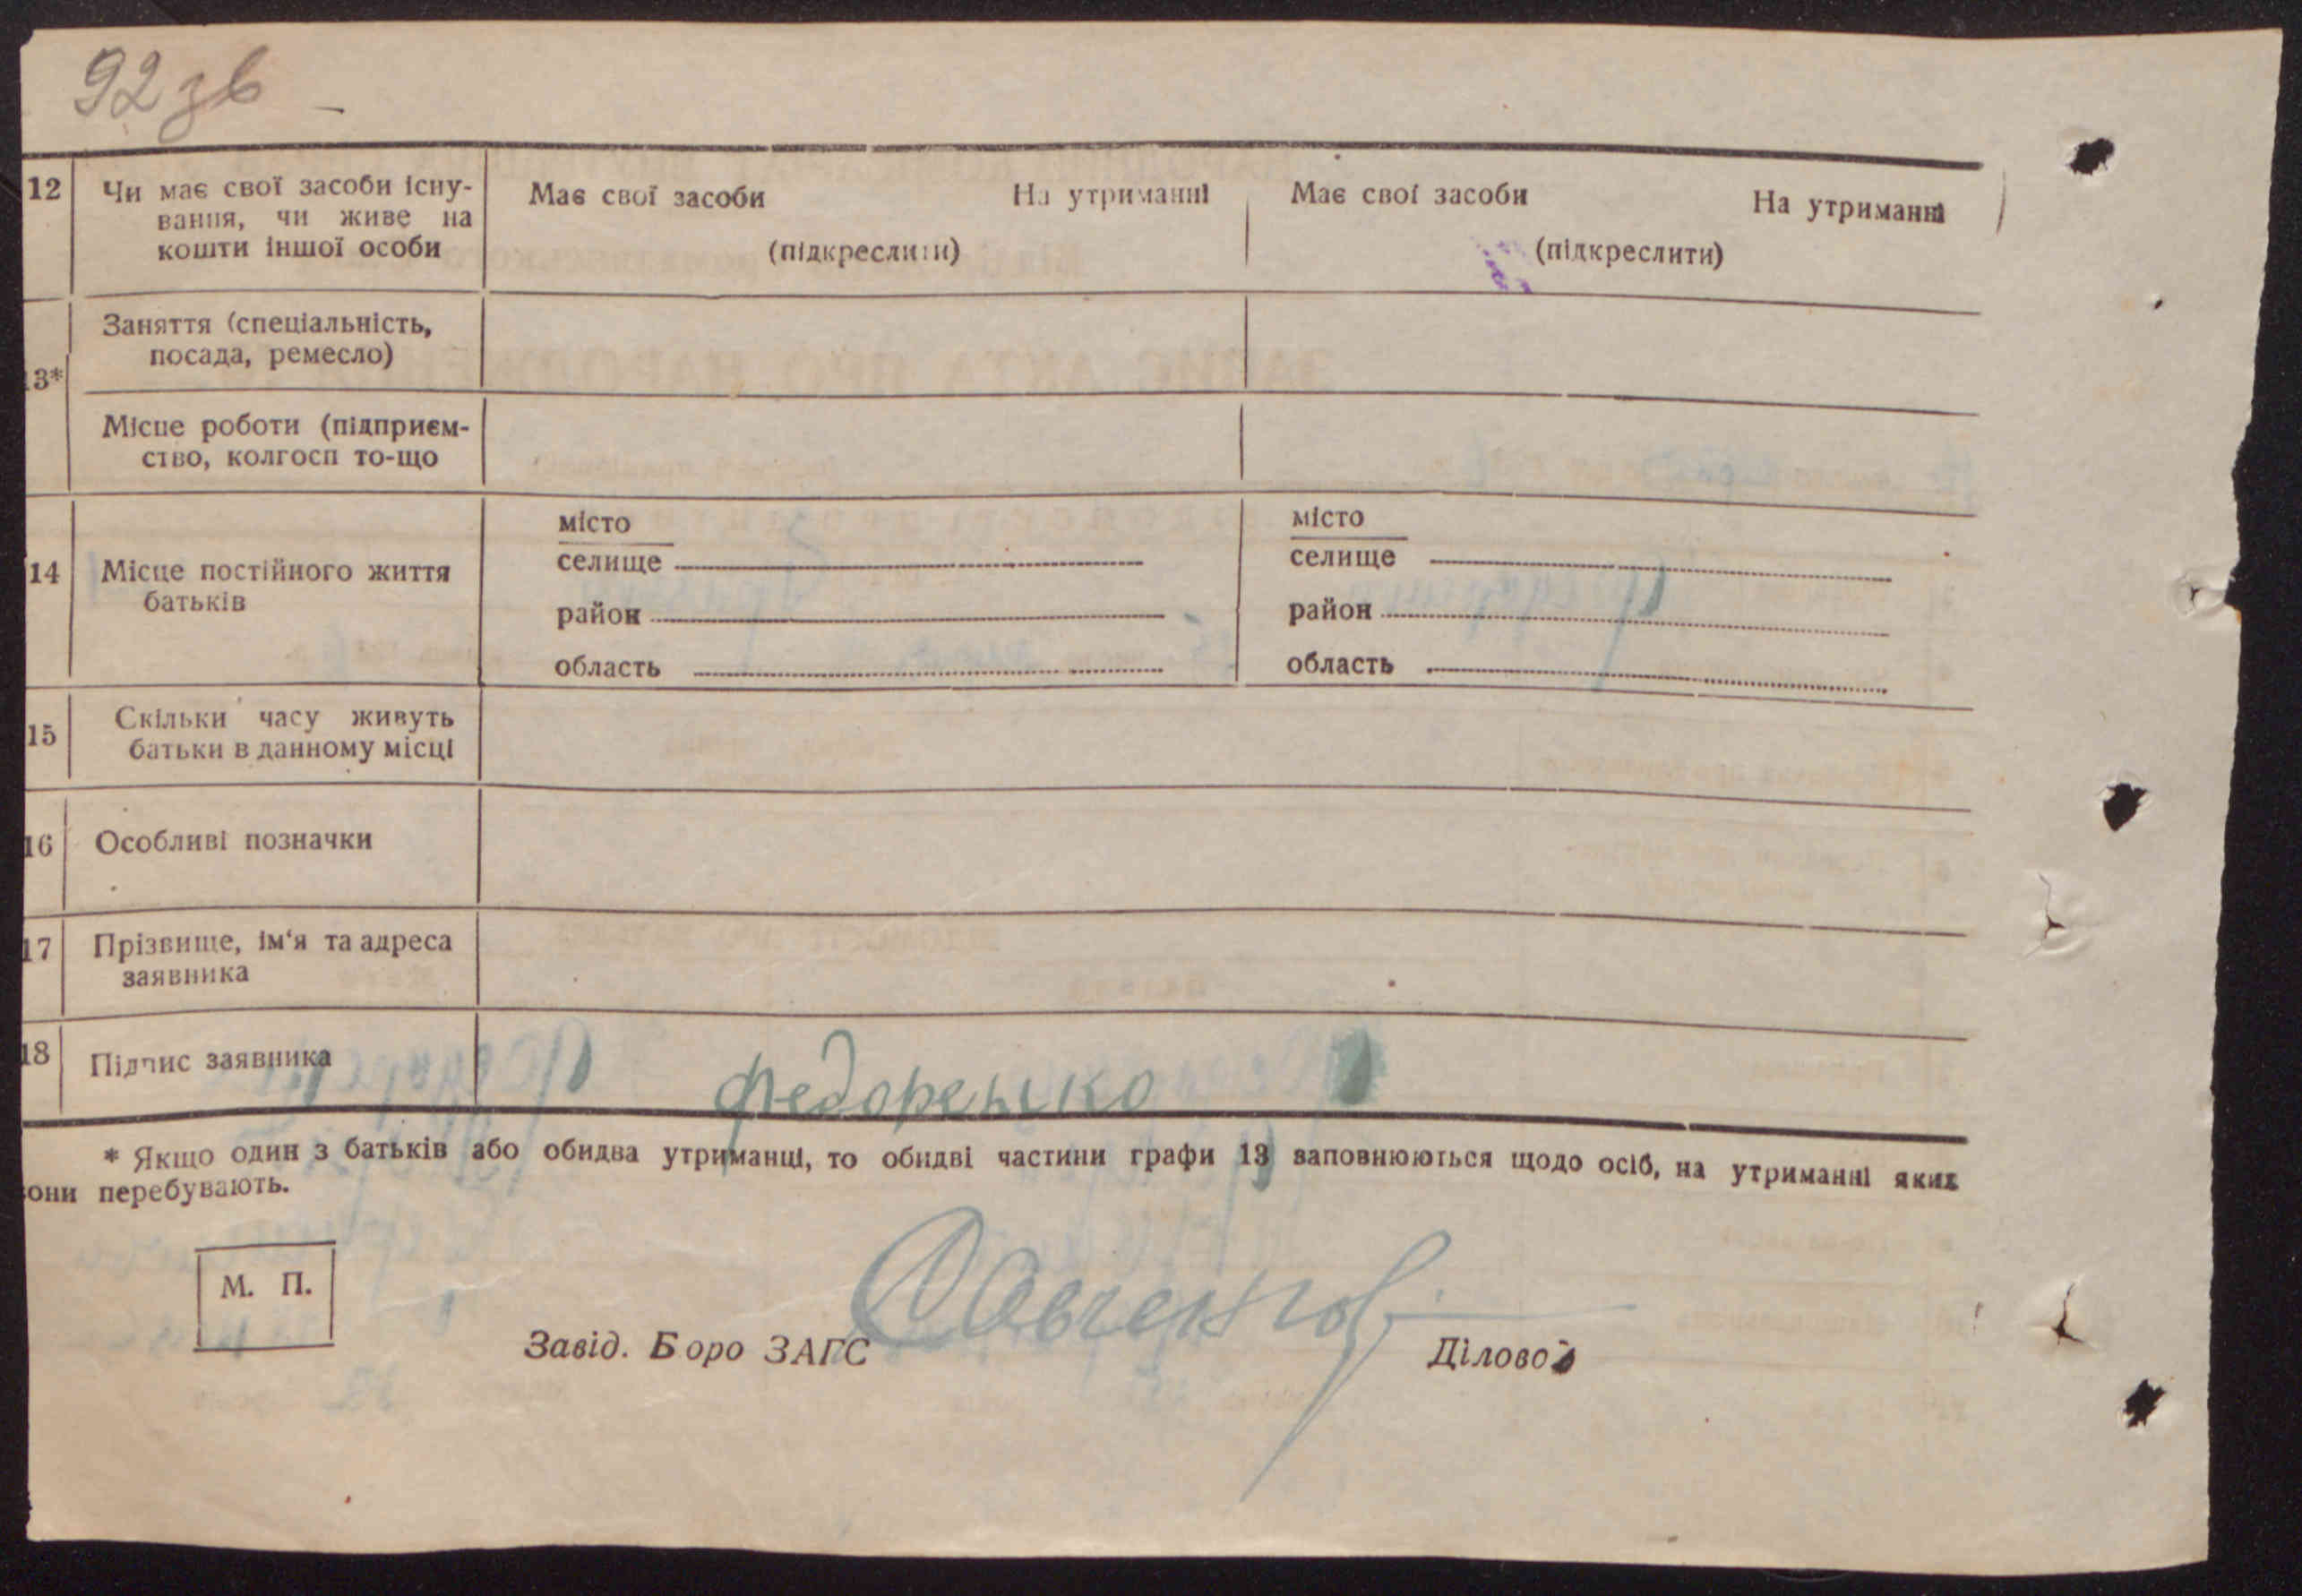 92 зв
12 Чи має свої засоби існу-
вання, чи живе на
кошти іншої особи
Має свої засоби На утриманні
(підкреслити)
Має свої засоби На утриманні
(підкреслити)
13*
Заняття (спеціальність,
посада, ремесло)
Місце роботи (підприєм-
ство, колгосп то-що
14 Місце постійного життя
батьків
місто
селище
район
область
місто
селище
район
область
15 Скільки часу живуть
батьки в данному місці
16 Особливі позначки
17 Прізвище, ім‘я та адреса
заявника
18 Підпис заявника
Федоренко
* Якщо один з батьків або обидва утриманці, то обидві частини графи 13 заповнюються щодо осіб, на утриманні яких
вони перебувають.
М. П.
Завід. Боро ЗАГС
Діловод